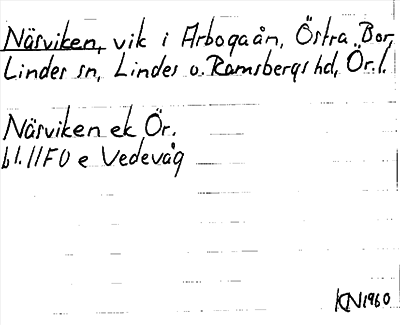 Näsviken, vik i Arbogaån, Östra Bor,
Lindes sn, Lindes o. Ramsbergs hd, Ör. l.
Näsviken ek Ör.
bl. 11F0 e Vedevåg
KN1960